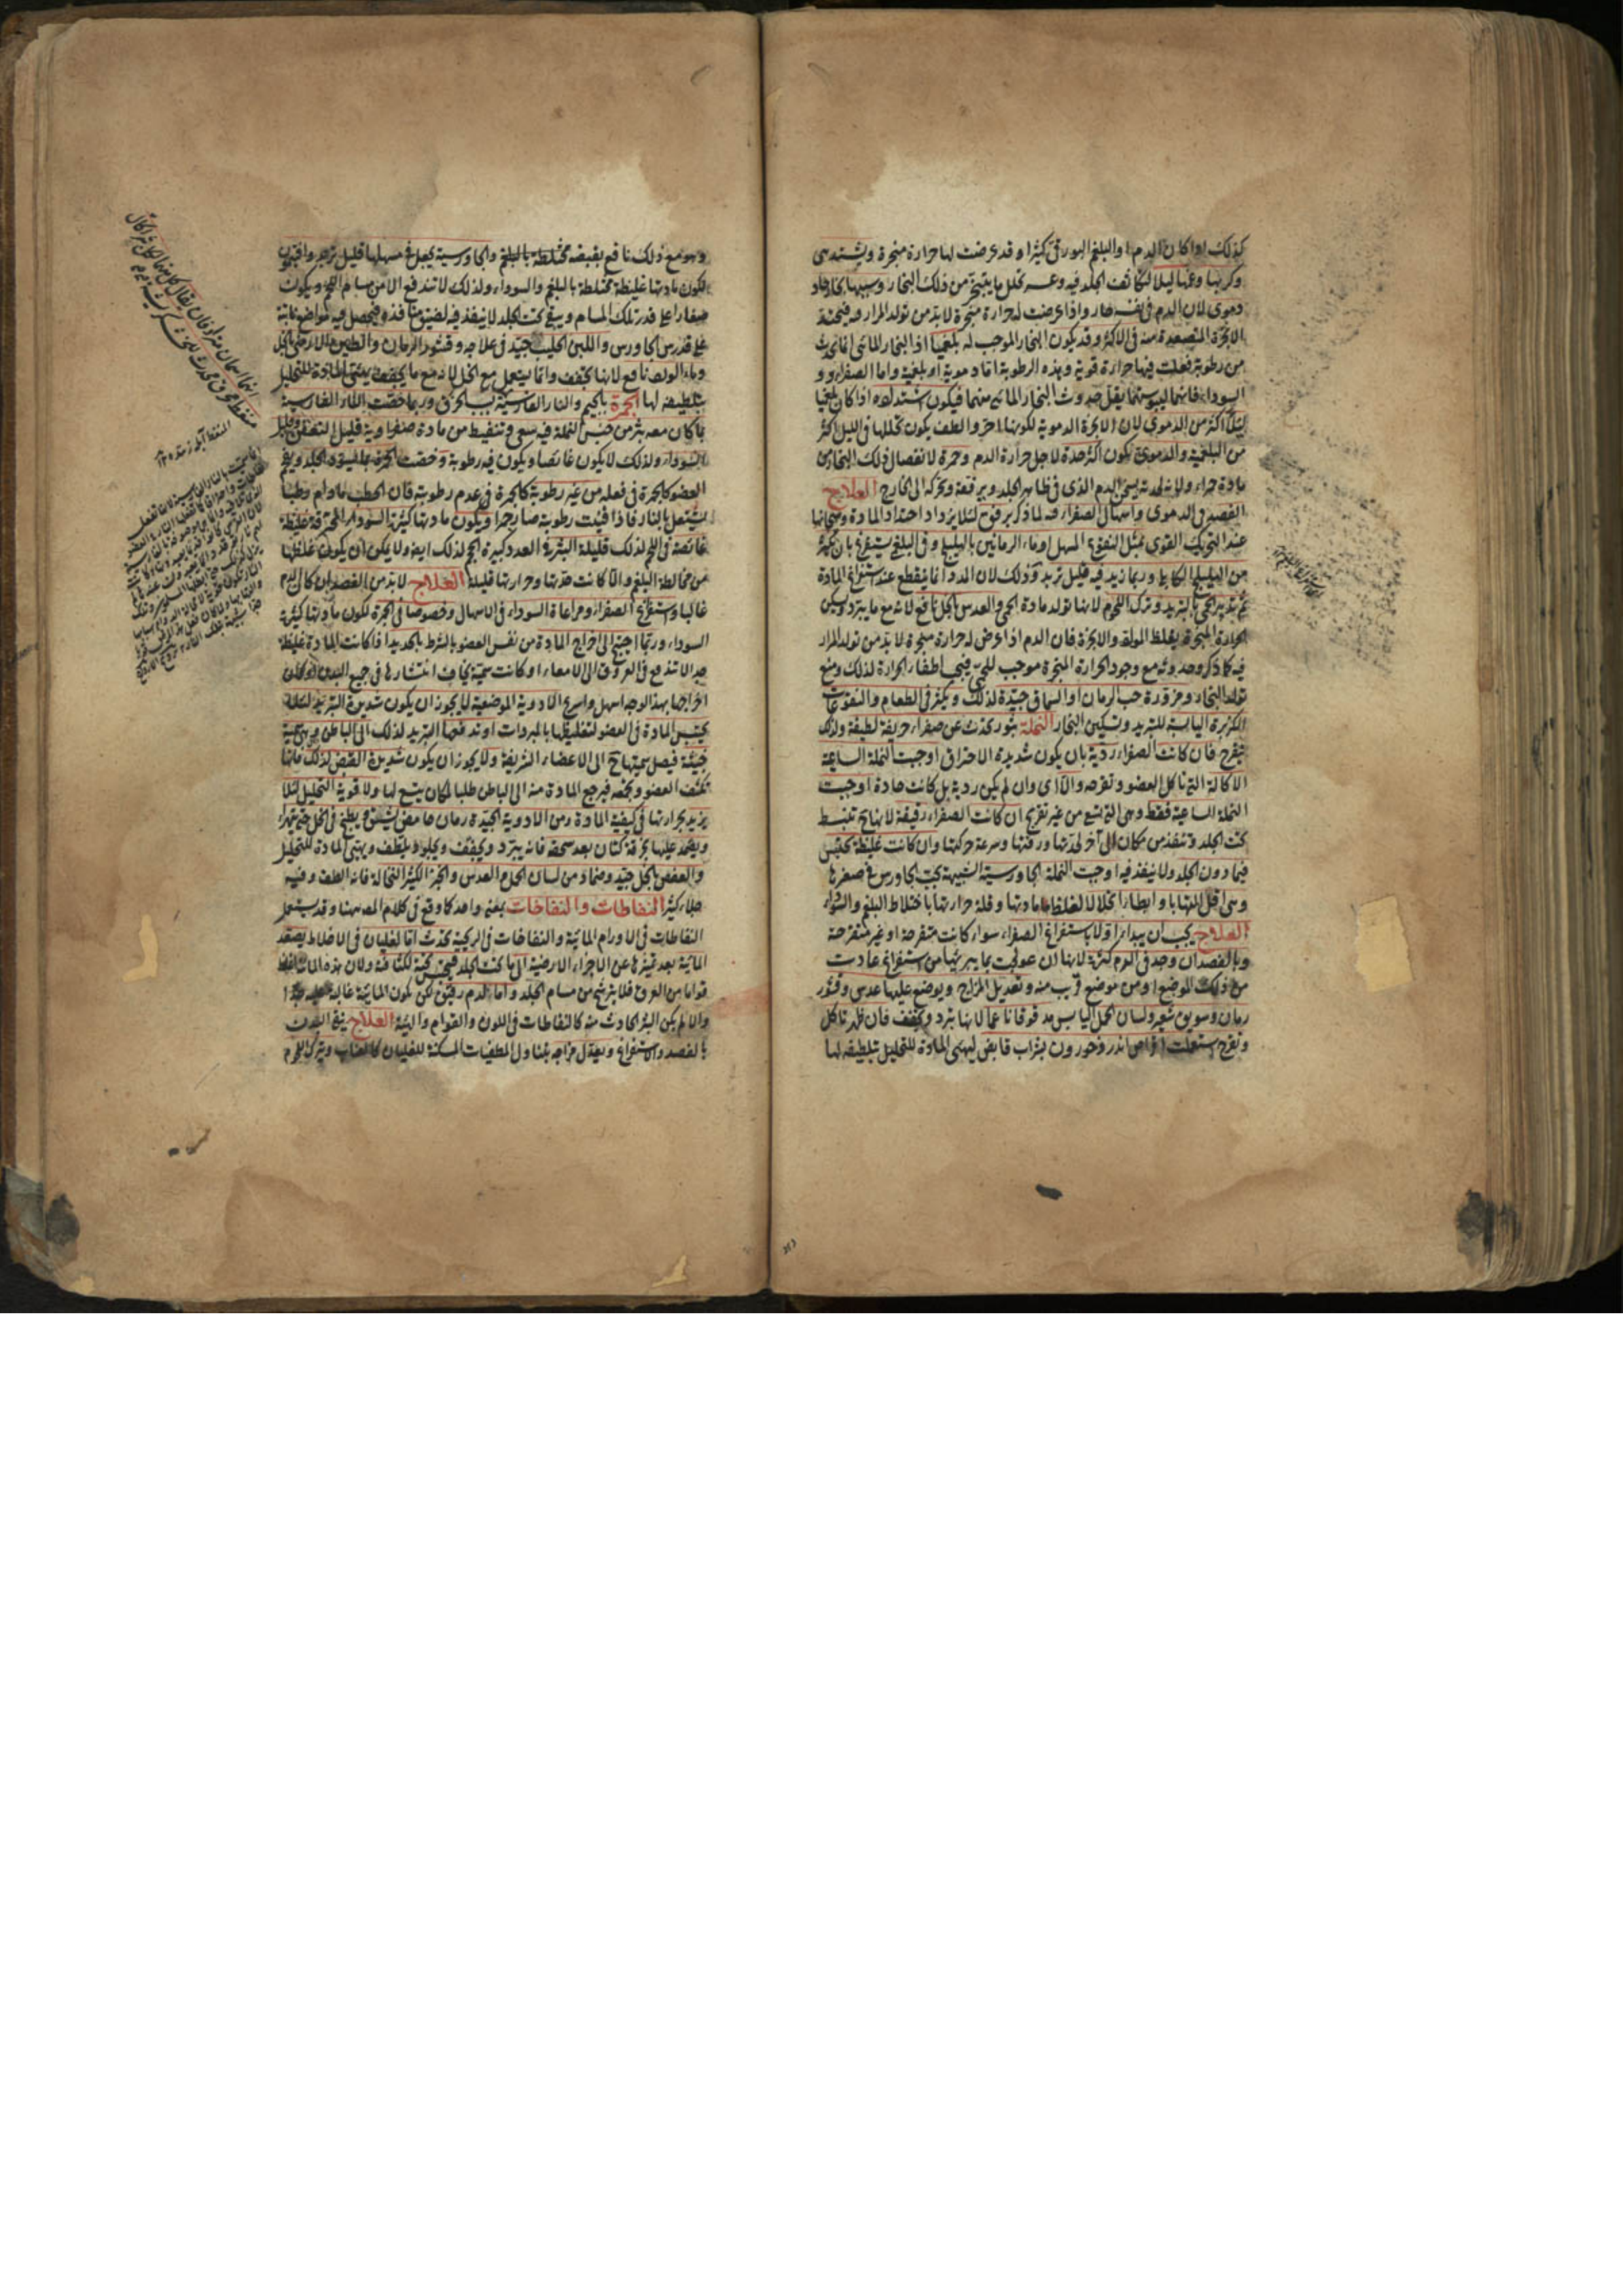 كذلك اذا كان الدم او البلغم البورقى كثيرا وقد عرضت لها حرارة مبخرة ويشتد هى
وكربها وغمها ليلا لتكاثف الجلد فيه وعسر تحلل ما يتبخر من ذلك البخار وسببها بخار حاد
دموى لان الدم فى نفسه حار واذا عرضت له حرارة مبخرة لا بد من تولد المرار فيه فيحتد
الابخرة المتصعدة منه فى الاكثر وقد يكون البخار الموجب له بلغميا اذ البخار المائى انما يحدث
من رطوبة فعلت فيها حرارة قوية وهذه الرطوبة اما دموية او بلغمية واما الصفراء و
السوداء فانهما ليبوستهما يقل حدوث البخار المائى منهما فيكون اشتداده اذا كان بلغميا
ليلا اكثر من الدموى لان الابخرة الدموية لكونها احر والطف يكون تحللها فى الليل اكثر
من البلغمية والدموى يكون اكثر حدة لاجل حرارة الدم وحمرة لانفصال ذلك البخار عن
مادة حمراء ولانه لحدته يسخن الدم الذى فى ظاهر الجلد ويرققه ويحركه الى الخارج العلاج
الفصد فى الدموى واسهال الصفراء فيه لما ذكر برفق لئلا يزداد احتداد المادة وهيجانها
عند التحريك القوى بمثل النقوع المسهل او ماء الرمانين بالهليلج وفى البلغمى يستفرغ بان يكثر
من الهليلج الكابلى وربما زيد فيه قليل تربد وذلك لان الدواء انما ينقطع عند استفراغ المادة
ثم تدبير الحمى بالتبريد وترك اللحوم لانها تولد مادة الحمى والعدس بالخل نافع لانه مع ما يبرد ويسكن
الحرارة المبخرة يغلظ المواد والابخرة فان الدم اذا عرض له حرارة مبخرة لا بد من تولد المرار
فيه كما ذكر وحدوثه مع وجود الحرارة المبخرة موجب للحمى فيجب اطفاء الحرارة لذلك ومنع
تولد البخار ومزورة حب الرمان او السماق جيدة لذلك ويكثر فى الطعام والنقوعات
الكزبرة اليابسة للتبريد وتسكين البخار النملة بثور تحدث عن صفراء حريفة لطيفة ولذلك
تقرح فان كانت الصفراء ردية بان يكون شديدة الاحتراق اوجبت النملة الساعية
الاكالة التى تاكل العضو وتقرحه والا اى وان لم يكن ردية بل كانت حادة اوجبت
النملة الساعية فقط وهى التى تسعى من غير تقريح ان كانت الصفراء رقيقة لانها تنبسط
تحت الجلد وتنفذ من مكان الى آخر لحدتها ورقتها وسرعة حركتها وان كانت غليظة تحتبس
فيما دون الجلد ولا ينفذ فيه اوجبت النملة الجاورسية الشبيهة بحب الجاورس فى صغرها
وهى اقل التهابا وابطأ انحلالا لغلظ مادتها وقلة حرارتها باختلاط البلغم والسوداء
العلاج يجب ان يبدأ اولا باستفراغ الصفراء سواء كانت متقرحة او غير متقرحة
وبالفصد ان وجد فى الدم كثرة لانها ان عولجت بما يبريها من استفراغ عادت
من ذلك الموضع او من موضع قريب منه وتعديل المزاج ويوضع عليها عدس وقشور
رمان وسويق شعير ولسان الحمل اليابس مدقوقا ناعما لانها تبرد وتجفف فان ظهر تاكل
وتقرح استعملت اقراص اندرخورون بشراب قابض ليهيئ المادة للتحليل بتلطيفه لها
وهو مع ذلك نافع بقبضه مختلطة بالبلغم والجاورسية يجعل فى مسهلها قليل تربد وافتيمون
لكون مادتها غليظة مختلطة بالبلغم والسوداء ولذلك لا تندفع الا من مسام اللحم ويكون
صغارا على قدر تلك المسام ويبقى تحت الجلد لا ينفذ فيه لضيق منافذه فيحصل فيه مواضع ناتية
على قدر الجاورس واللبن الحليب جيد فى علاجه وقشور الرمان والطين الارمنى بالخل
وماء الورد نافع لانها تجفف وانما يستعمل مع الخل لانه مع ما يجفف يهيئ المادة للتحليل
بتلطيفه لها الجمرة بالجيم والنار الفارسية لهيب الحرق وربما خصت النار الفارسية
بما كان معه بثر من جنس النملة فيه سعى وتنفيط من مادة صفراوية قليل التعفن وقليل
السوداء ولذلك لا يكون غائصا ويكون فيه رطوبة وخصت الجمرة بما يسود الجلد ويفحم
العضو كالجمرة فى فعله من غير رطوبة كالجمرة فى عدم رطوبته فان الحطب ما دام رطبا
يشتعل بالنار فاذا فنيت رطوبته صار جمرا ويكون مادتها كثيرة السوداء المحترقة غليظة
غائصة فى اللحم لذلك قليلة البثر فى العدد كبيرة الحجم لذلك ايضا ولا يمكن ان يكون غلظها
من مخالطة البلغم والا كانت حدتها وحرارتها قليلة العلاج لا بد من الفصد ان كان الدم
غالبا واستفراغ الصفراء ومراعاة السوداء فى الاسهال وخصوصا فى الجمرة لكون مادتها كثيرة
السوداء وربما احتيج الى اخراج المادة من نفس العضو بالشرط بالحديد اذا كانت المادة غليظة
جدا لا تندفع فى العروق الى الامعاء او كانت سمية يخاف انتشارها فى جميع البدن او كان
اخراجها بهذا الوجه اسهل واسرع والادوية الموضعية لا يجوز ان يكون شديدة التبريد لئلا
يحتبس المادة فى العضو لتغليظها بالمبردات او تدفعها التبريد لذلك الى الباطن وهى سمية
خبيثة فيصل سميتها ح الى الاعضاء الشريفة ولا يجوز ان يكون شديدة القبض لذلك فانها
تكثف العضو وتجمعه فيرجع المادة منه الى الباطن طلبا لمكان يتسع لها ولا قوية التحليل لئلا
يزيد بحرارتها فى كيفية المادة ومن الادوية الجيدة رمان حامض يشقق ويطبخ فى الخل حتى يتهرأ
ويضمد عليها بخرقة كتان بعد سحقه فانه يبرد ويجفف ويجلو ويلطف ويهيئ المادة للتحليل
والعفص بالخل جيد وضماد من لسان الحمل والعدس والخبز الكثير النخالة فانه الطف وفيه
جلاء كثير النفاطات والنفاخات بمعنى واحد كما وقع فى كلام المص ههنا وقد يستعمل
النفاطات فى الاورام المائية والنفاخات فى الريحية تحدث اما لغليان فى الاخلاط يصعد
المائية بعد تميزها عن الاجزاء الارضية الى ما تحت الجلد فيحتبس تحته لكثافته ولان هذه المائية اغلظ
قواما من العرق فلا يترشح من مسام الجلد واما لدم رقيق لكن يكون المائية غالبة عليه جدا
والا لم يكن البثر الحادث منه كالنفاطات فى اللون والقوام والهيئة العلاج ينقى البدن
بالفصد والاستفراغ ويعدل مزاجه بتناول المطفيات المسكنة للغليان كالعناب ويترك اللحم